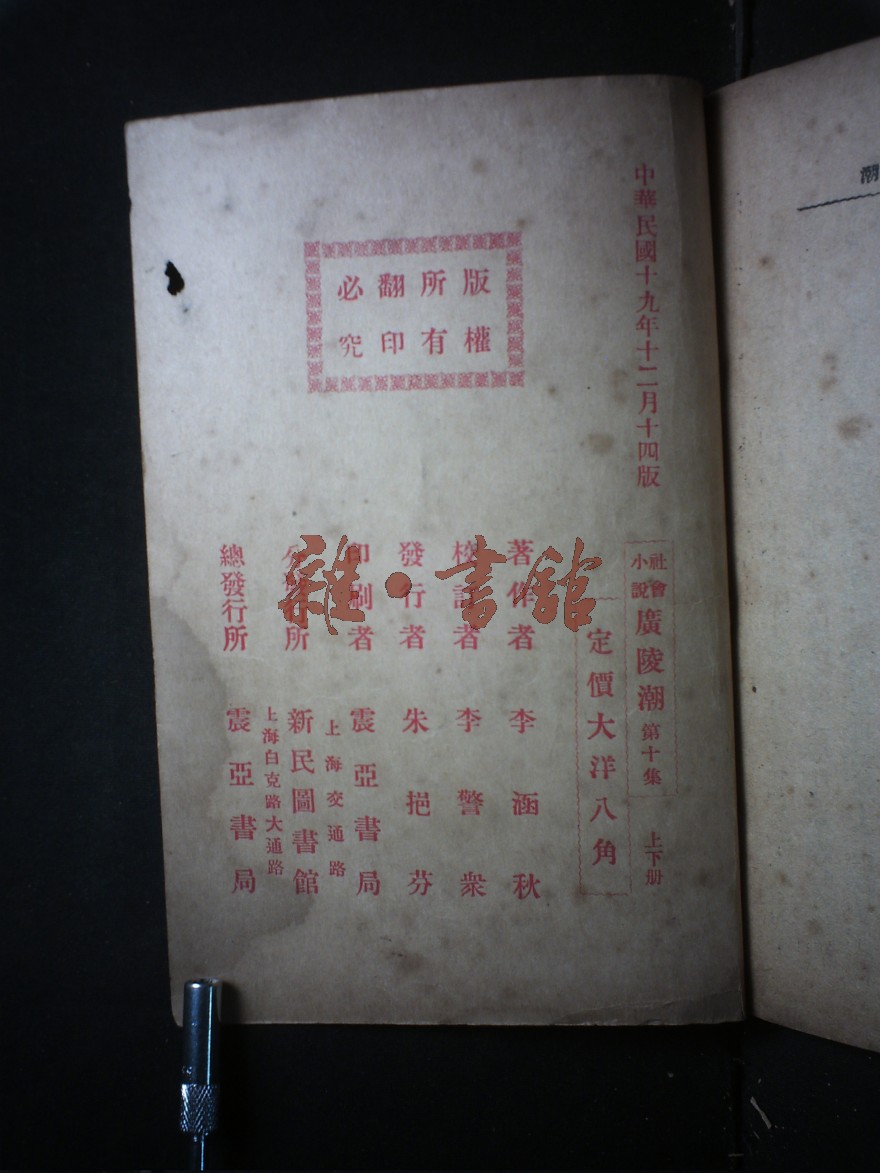 中華民國十九年十二月十四版
版權所有翻印必究
社會小說廣陵潮第十集 上下册
定價大洋八角
著作者 李涵秋
校訂者 李警衆
發行者 朱挹芬
印刷者 震亞書局
上海交通路
分發行所 新民圖書館
上海白克路大通路
總發行所 震亞書局
雜·書館
潮